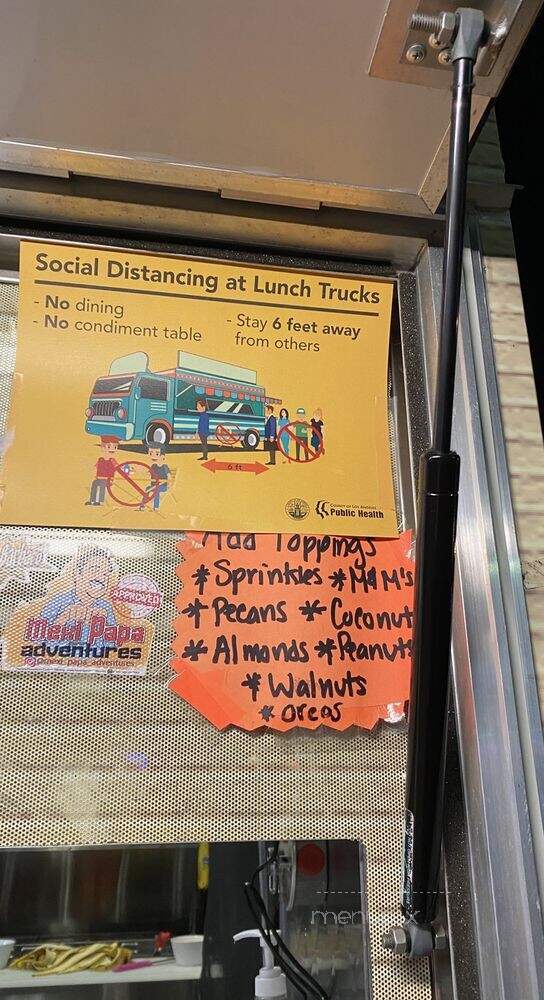 Social Distancing at Lunch Trucks
- No dining
- No condiment table
- Stay 6 feet away
from others
6 ft
COUNTY OF LOS ANGELES
Public Health
Add Toppings
* Sprinkles * M&M's
* Pecans * Coconut
* Almonds * Peanuts
* Walnuts
* Oreos
APPROVED
Mexi Papa
adventures
@mexi_papa_adventures